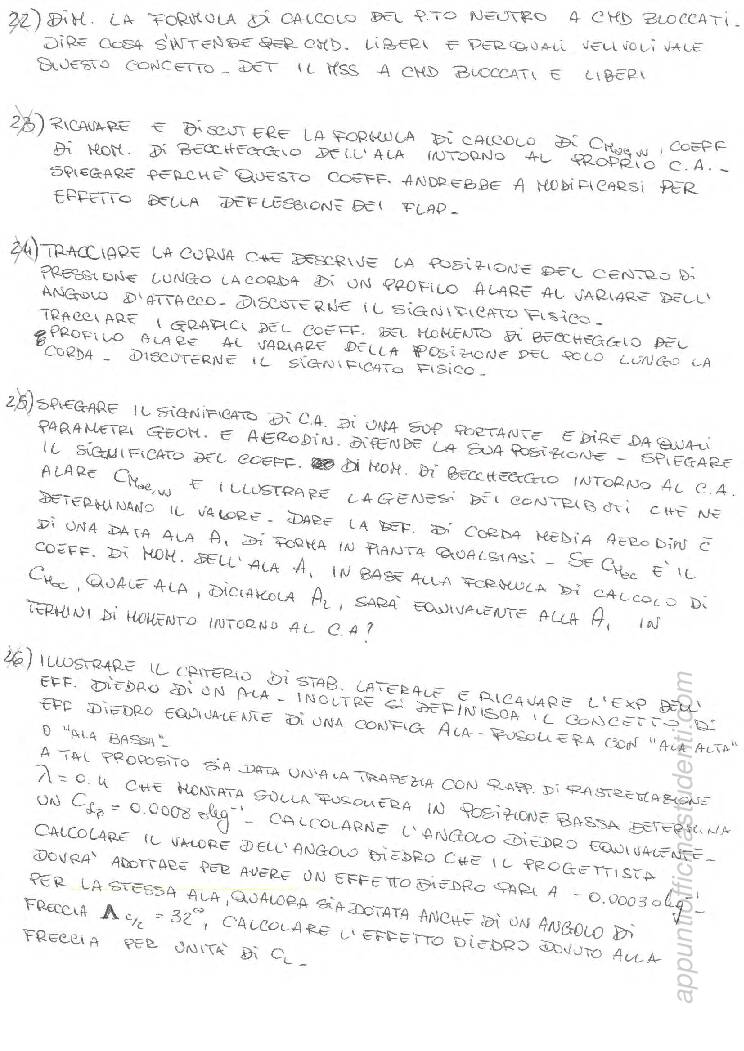 22) DIM. LA FORMULA DI CALCOLO DEL P.TO NEUTRO A CMD BLOCCATI.
DIRE COSA S'INTENDE PER CMD. LIBERI E PER QUALI VELIVOLI VALE
QUESTO CONCETTO - DET IL MSS A CMD BLOCCATI E LIBERI
23) RICAVARE E DISCUTERE LA FORMULA DI CALCOLO DI CMac,w, COEFF
DI MOM. DI BECCHEGGIO DELL'ALA INTORNO AL PROPRIO C.A. -
SPIEGARE PERCHE' QUESTO COEFF. ANDREBBE A MODIFICARSI PER
EFFETTO DELLA DEFLESSIONE DEI FLAP-
24) TRACCIARE LA CURVA CHE DESCRIVE LA POSIZIONE DEL CENTRO DI
PRESSIONE LUNGO LA CORDA DI UN PROFILO ALARE AL VARIARE DELL'
ANGOLO D'ATTACCO- DISCUTERNE IL SIGNIFICATO FISICO-
TRACCIARE I GRAFICI DEL COEFF. DEL MOMENTO DI BECCHEGGIO DEL
PROFILO ALARE AL VARIARE DELLA POSIZIONE DEL POLO LUNGO LA
CORDA - DISCUTERNE IL SIGNIFICATO FISICO-
25) SPIEGARE IL SIGNIFICATO DI C.A. DI UNA SUP PORTANTE E DIRE DA QUALI
PARAMETRI GEOM. E AERODIN. DIPENDE LA SUA POSIZIONE - SPIEGARE
IL SIGNIFICATO DEL COEFF. DI MOM. DI BECCHEGGIO INTORNO AL C.A.
ALARE CMac,w E ILLUSTRARE LA GENESI DEI CONTRIBUTI CHE NE
DETERMINANO IL VALORE- DARE LA DEF. DI CORDA MEDIA AERODIN c̄
DI UNA DATA ALA A1 DI FORMA IN PIANTA QUALSIASI - SE CMac E' IL
COEFF. DI MOM. DELL'ALA A1 IN BASE ALLA FORMULA DI CALCOLO DI
CMac, QUALE ALA, DICIAMOLA A2, SARA' EQUIVALENTE ALLA A1 IN
TERMINI DI MOMENTO INTORNO AL C.A?
26) ILLUSTRARE IL CRITERIO DI STAB. LATERALE E RICAVARE L'EXP DELL'
EFF. DIEDRO DI UN ALA- INOLTRE SI DEFINISCA IL CONCETTO DI
EFF DIEDRO EQUIVALENTE DI UNA CONFIG ALA-FUSOLIERA CON "ALA ALTA"
O "ALA BASSA"-
A TAL PROPOSITO SIA DATA UN'ALA TRAPEZIA CON RAPP. DI RASTREMAZIONE
λ=0.4 CHE MONTATA SULLA FUSOLIERA IN POSIZIONE BASSA DETERMINA
UN Cℒβ = 0.0008 deg⁻¹ - CALCOLARNE L'ANGOLO DIEDRO EQUIVALENTE-
CALCOLARE IL VALORE DELL'ANGOLO DIEDRO CHE IL PROGETTISTA
DOVRA' ADOTTARE PER AVERE UN EFFETTO DIEDRO PARI A -0.0003 deg⁻¹
PER LA STESSA ALA, QUALORA SIA DOTATA ANCHE DI UN ANGOLO DI
FRECCIA Λc/2 = 32°, CALCOLARE L'EFFETTO DIEDRO DOVUTO ALLA
FRECCIA PER UNITA' DI CL-
appuntiofficinastudenti.com